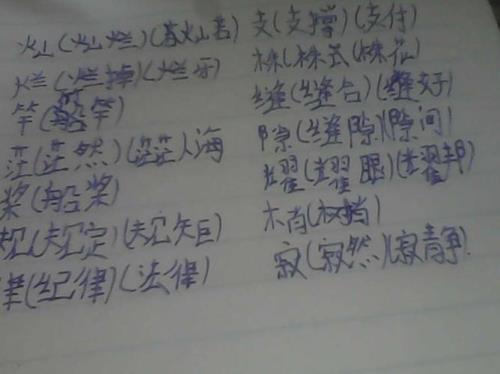 灿(灿烂)(黄灿若)
烂(烂掉)(烂牙)
竿(船竿)
茫(茫然)(茫茫人海
桨(船桨)
规(规定)(规矩)
律(纪律)(法律)
支(支撑)(支付)
株(株式(株花)
缝(缝合)(缝好)
隙(缝隙)(隙间)
耀(耀眼)(耀邦)
梢(树梢)
寂(寂然)(寂静)